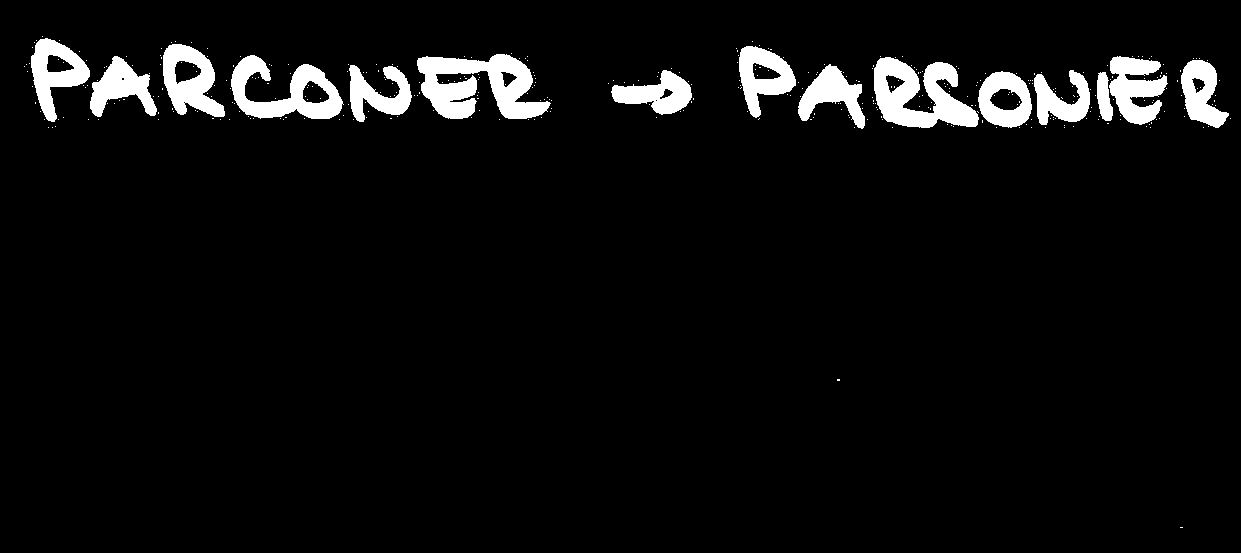 PARCONER → PARSONIER